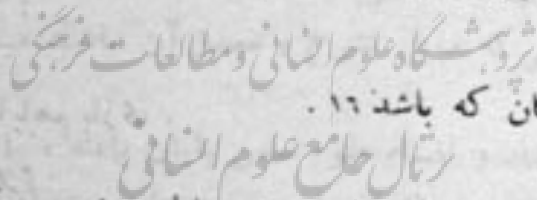 پژوهشگاه علوم انسانی و مطالعات فرهنگی
ان که باشذ ۱۶ .
رتال جامع علوم انسانی